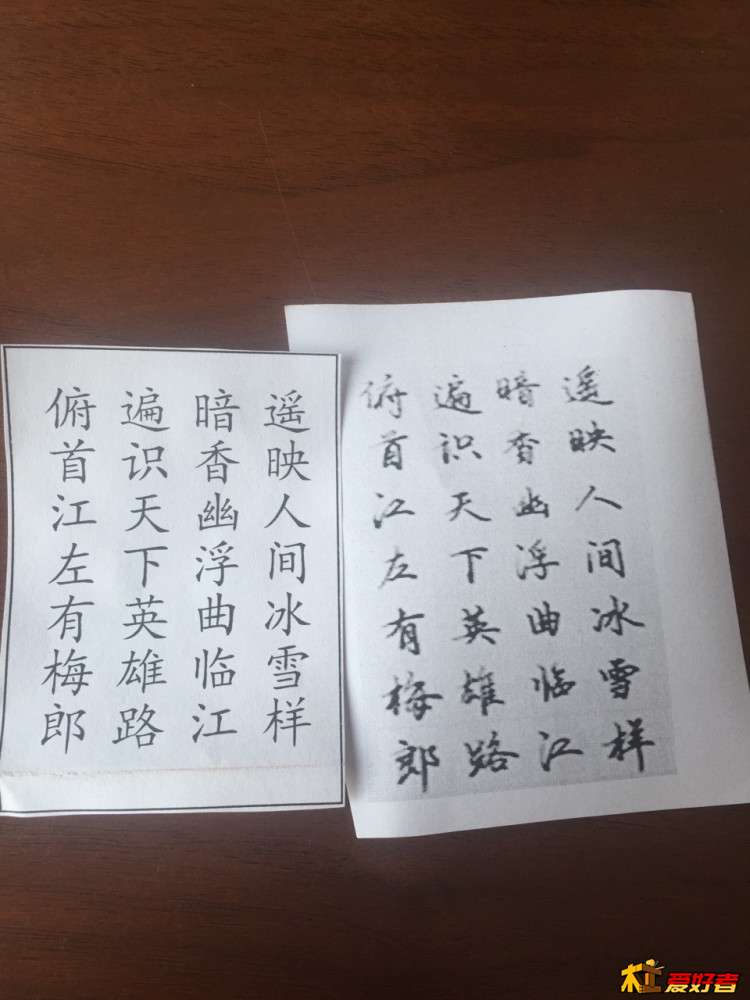 遥映人间冰雪样
暗香幽浮曲临江
遍识天下英雄路
俯首江左有梅郎
遥映人间冰雪样
暗香幽浮曲临江
遍识天下英雄路
俯首江左有梅郎
杠爱好者